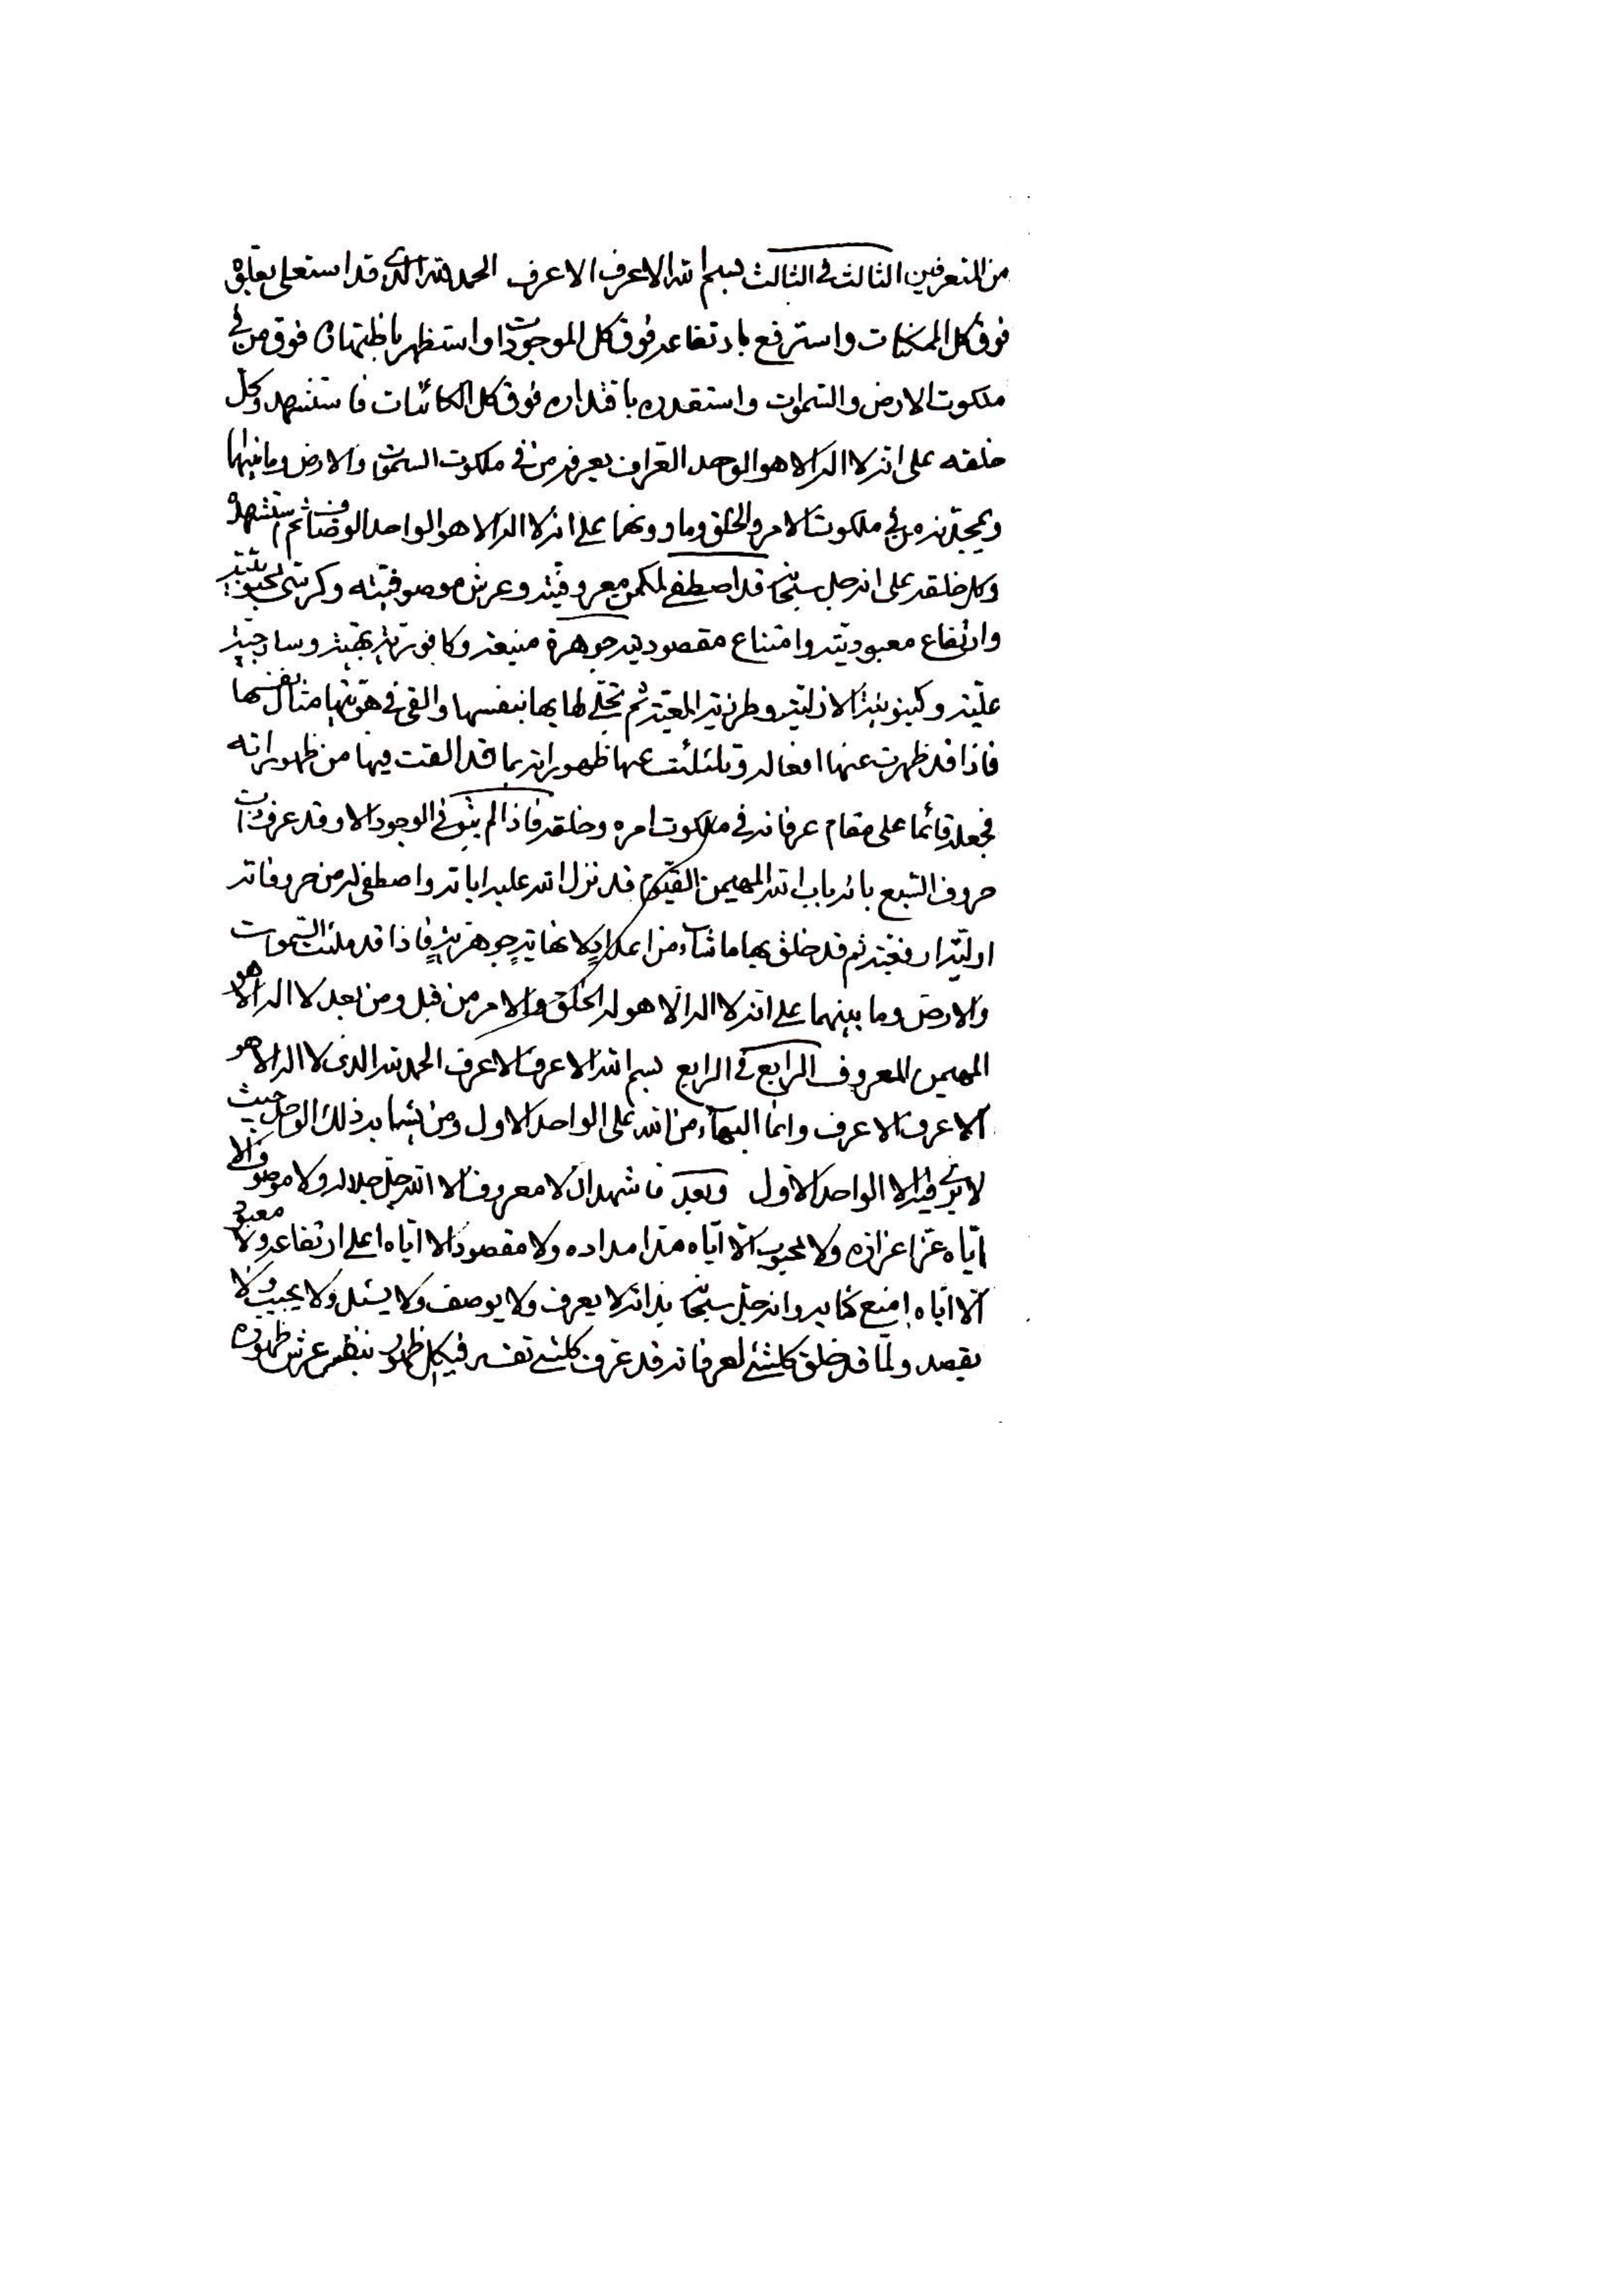 من المتعرفين الثالث في الثالث بسم الله الاعرف الاعرف الحمد لله الذي قد استعلى بعلوه
فوق كل الممكنات واسترفع بارتفاعه فوق كل الموجودات واستظهر باظتهاره فوق من في
ملكوت الارض والسموات واستقدره باقتداره فوق كل الكائنات فاستشهده وكل
خلقه على انه لا اله الا هو الوحد العراف يعرفه من في ملكوت السموات والارض وما بينهما
ويمجدنه من في ملكوت الامر والخلق وما دونهما على انه لا اله الا هو الواحد الوصاف ثم استشهده
وكل خلقه على انه جل سبحانه قد اصطفى لمكمن معروفيته وعرش موصوفيته وكرسي محبوبيته
وارتفاع معبوديته وامتناع مقصوديته جوهرة منيعة وكافورية بهية وساذجية
علية وكينونية الازلية وطرزية المعية ثم تجلى لها بها بنفسها والقى في هويتها مثال نفسها
فاذا قد ظهرت عنها افعاله وتلئلئت عنها ظهوراته بما قد القت فيها من ظهوراته
فجعله قائما على مقام عرفانه في ملكوت امره وخلقه فاذا لم في الوجود الا وقد عرف ذات
حروف السبع بانه باب الله المهيمن القيوم قد نزل الله عليه اياته واصطفى له من حروفاته
اولية ثم قد خلق بها ما شاء من اعداد لا نهاية جوهرية فاذا قد ملئت السموات
والارض وما بينهما على انه لا اله الا هو له الخلق والامر من قبل ومن بعد لا اله الا هو
المهيمن المعروف الرابع في الرابع بسم الله الاعرف الاعرف الحمد لله الذي لا اله الا هو
الاعرف الاعرف وانما البهاء من الله على الواحد الاول ومن يشابه ذلك الواحد حيث
لا يرى فيه الا الواحد الاول وبعد فاشهد ان لا معروف الا الله جل جلاله ولا موصوف الا
اياه عز اعزازه ولا محبوب الا اياه مدا مداده ولا مقصود الا اياه اعلى ارتفاعه ولا معبود
الا اياه امنع وانه جل سبحانه بذاته لا يعرف ولا يوصف ولا يسئل ولا يجيب ولا
يقصد ولما قد خلق كلشئ لعرفانه قد عرف كلشئ نفسه في كل ظهور بنفس عرش ظهوره